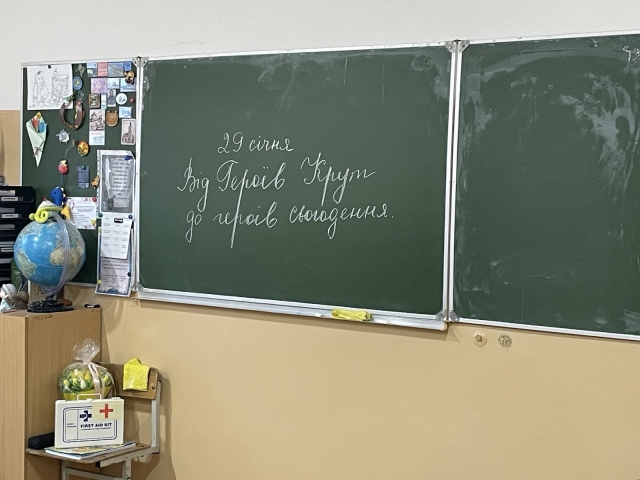 29 січня
Від Героїв Крут
до героїв сьогодення.
FIRST AID KIT